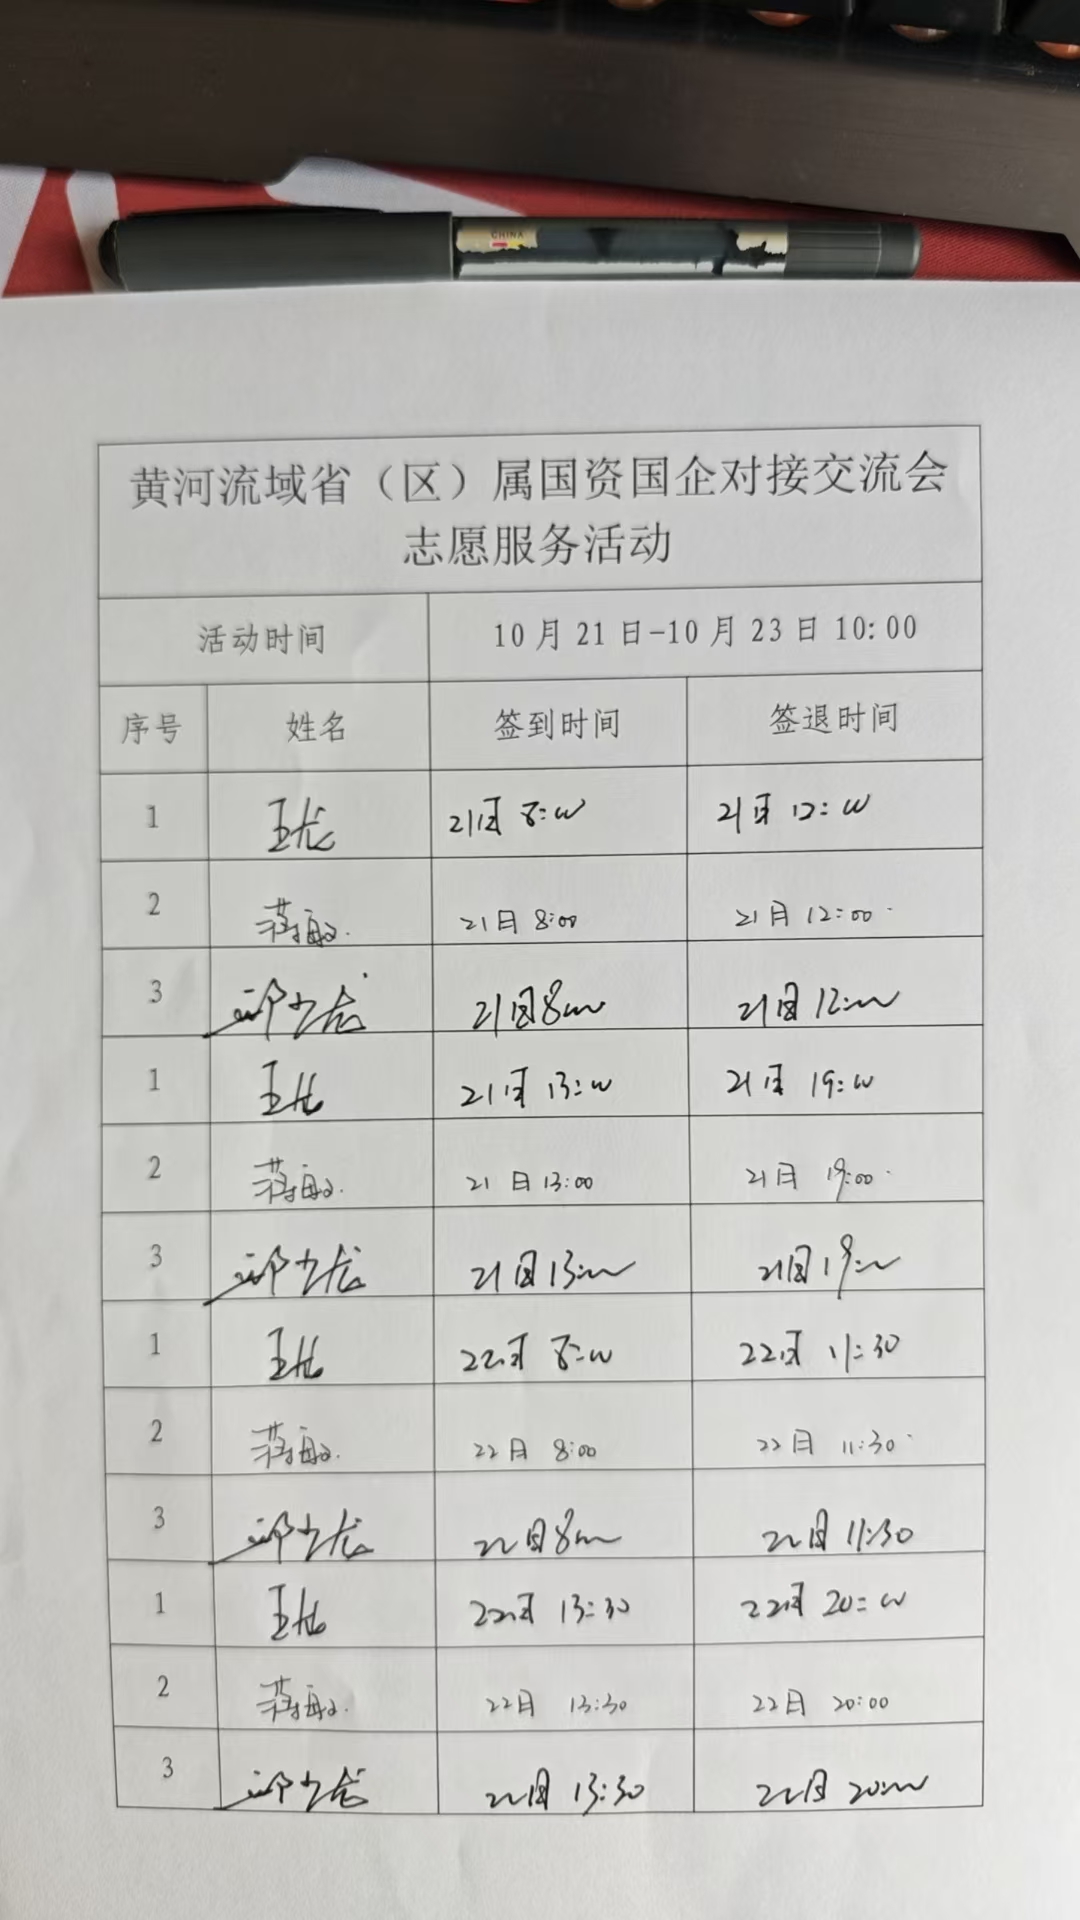 CHINA
黄河流域省（区）属国资国企对接交流会
志愿服务活动
活动时间 10月21日-10月23日10:00
序号 姓名 签到时间 签退时间
1 王龙 21日 8:00 21日 12:00
2 蒋敏 21日 8:00 21日 12:00
3 21日 8:00 21日 12:00
1 王龙 21日 13:00 21日 19:00
2 蒋敏 21日 13:00 21日 19:00
3 21日 13:00 21日 19:00
1 王龙 22日 8:00 22日 11:30
2 蒋敏 22日 8:00 22日 11:30
3 22日 8:00 22日 11:30
1 王龙 22日 13:30 22日 20:00
2 蒋敏 22日 13:30 22日 20:00
3 22日 13:30 22日 20:00